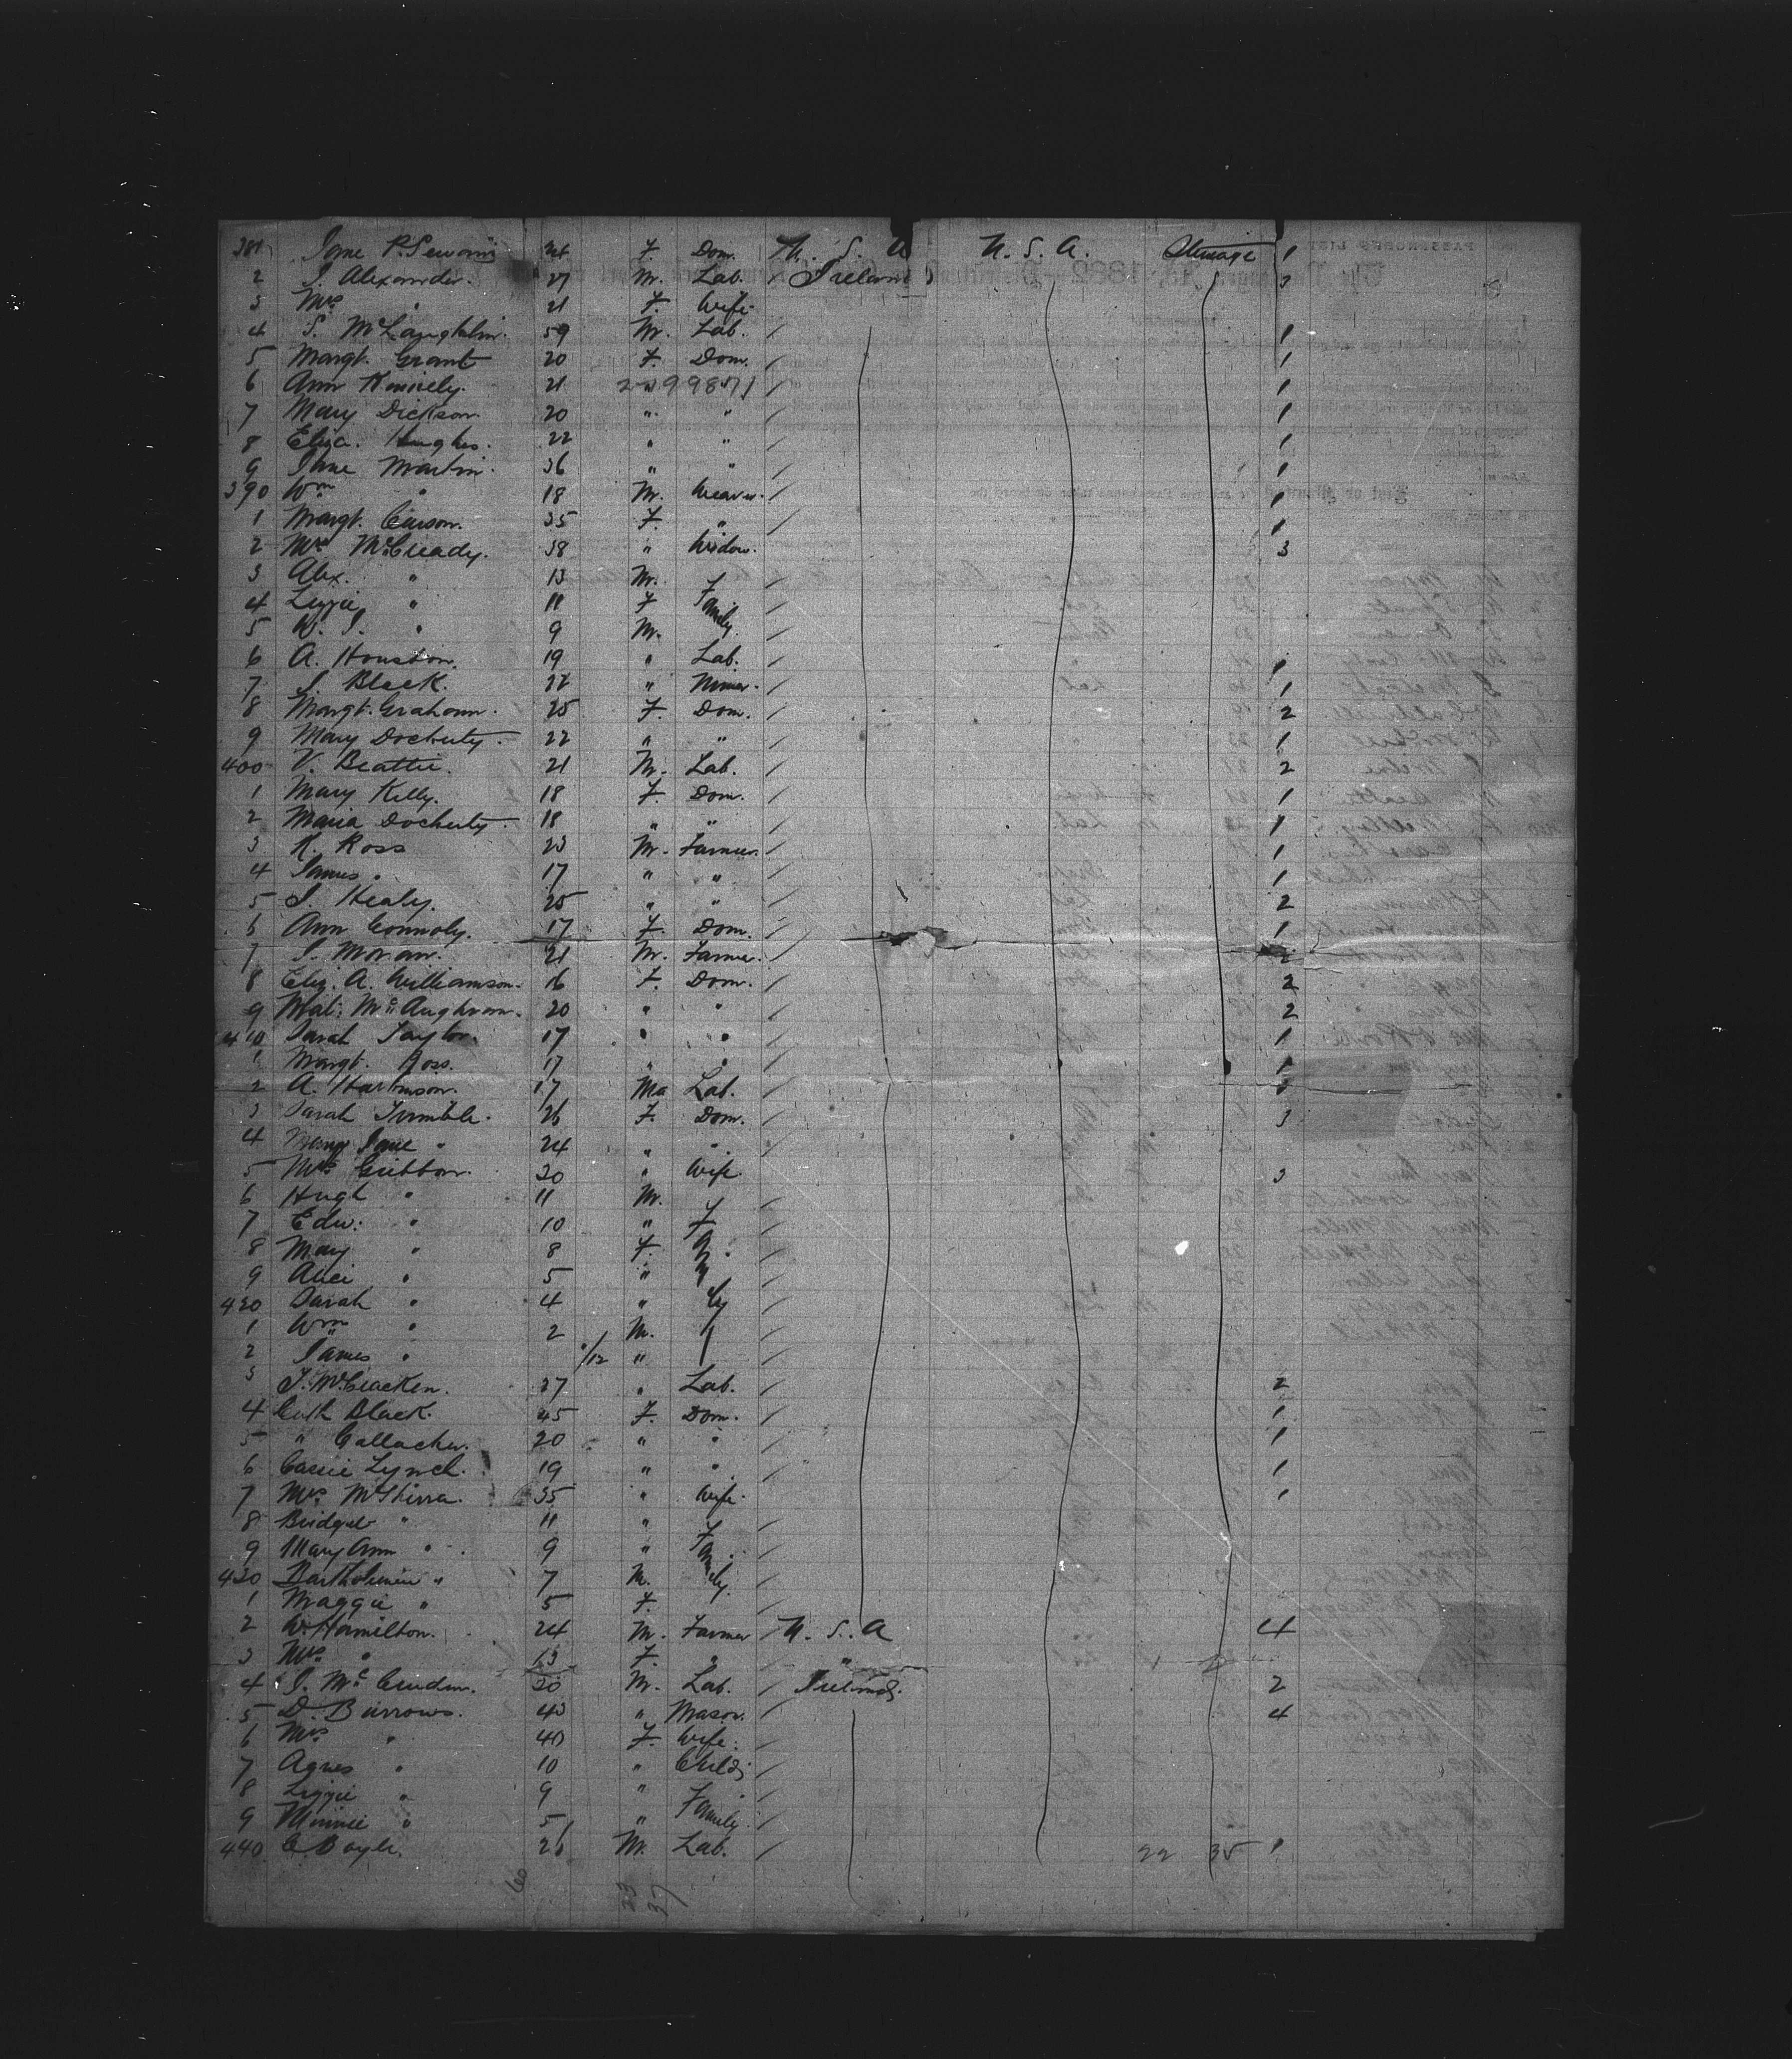 381 Jane 24 F. Dom. U. S. A U. S. A. Steerage 1
2 J. Alexander. 27 M. Lab. Ireland 3
3 Mrs " 21 F. Wife
4 S. McLaughlin. 59 M. Lab. 1
5 Margt. Grant 20 F. Dom. 1
6 Ann Kennely. 21 2-499871 1
7 Mary Dickson. 20 " " 1
8 Eliza. Hughes. 22 " " 1
9 Jane Martin. 36 " " 1
390 Wm " 18 M. Weaver. 1
1 Margt. Carson. 35 F. " 1
2 Mrs McCready. 38 " Widow. 3
3 Alex. " 13 M.
4 Lizzie " 11 F Family.
5 W. J. " 9 M.
6 A. Houston. 19 " Lab. 1
7 J. Black. 22 " Miner. 1
8 Margt. Graham. 25 F. Dom. 2
9 Mary Docherty. 22 " " 1
400 V. Beattie. 21 M. Lab. 2
1 Mary Kelly. 18 F. Dom. 1
2 Maria Docherty. 18 " " 1
3 R. Ross 23 M. Farmer. 1
4 James " 17 " " 1
5 J. Healy. 25 " " 2
6 Ann Connoly. 17 F. Dom. 1
7 J. Moran. 21 M. Farmer.
8 Eliz. A. Williamson. 16 F. Dom. 2
9 20 " " 2
410 Sarah Taylor. 17 " " 1
1 Margt. Ross. 17 " " 1
2 A. 17 Ma Lab.
3 Sarah Trimble. 26 F. Dom. 3
4 Mary Jane " 24 " "
5 Mrs Gribbon. 30 " Wife 3
6 Hugh " 11 M.
7 Edw: " 10 " Family
8 Mary " 8 F.
9 Alice " 5 "
420 Sarah " 4 "
1 Wm " 2 M.
2 James " /12 "
3 J. McCracken. 27 " Lab. 2
4 Cath Black. 45 F. Dom. 1
5 " Gallacher. 20 " " 1
6 Cassie Lynch. 19 " " 1
7 Mrs 35 " Wife. 1
8 Bridget " 11 "
9 Mary Ann " 9 " Family.
430 Bartholmew " 7 M.
1 Maggie " 5 F.
2 W. Hamilton. 24 M. Farmer U. S. A 4
3 Mrs " F. " "
4 J. 20 M. Lab. Ireland. 2
5 D. Burrows. 43 " Mason. 4
6 Mrs " 40 F. Wife.
7 Agnes " 10 " Child
8 Lizzie " 9 " Family.
9 Minnie " 5 "
440 C Boyle. M. Lab. 22 35 1
33
37